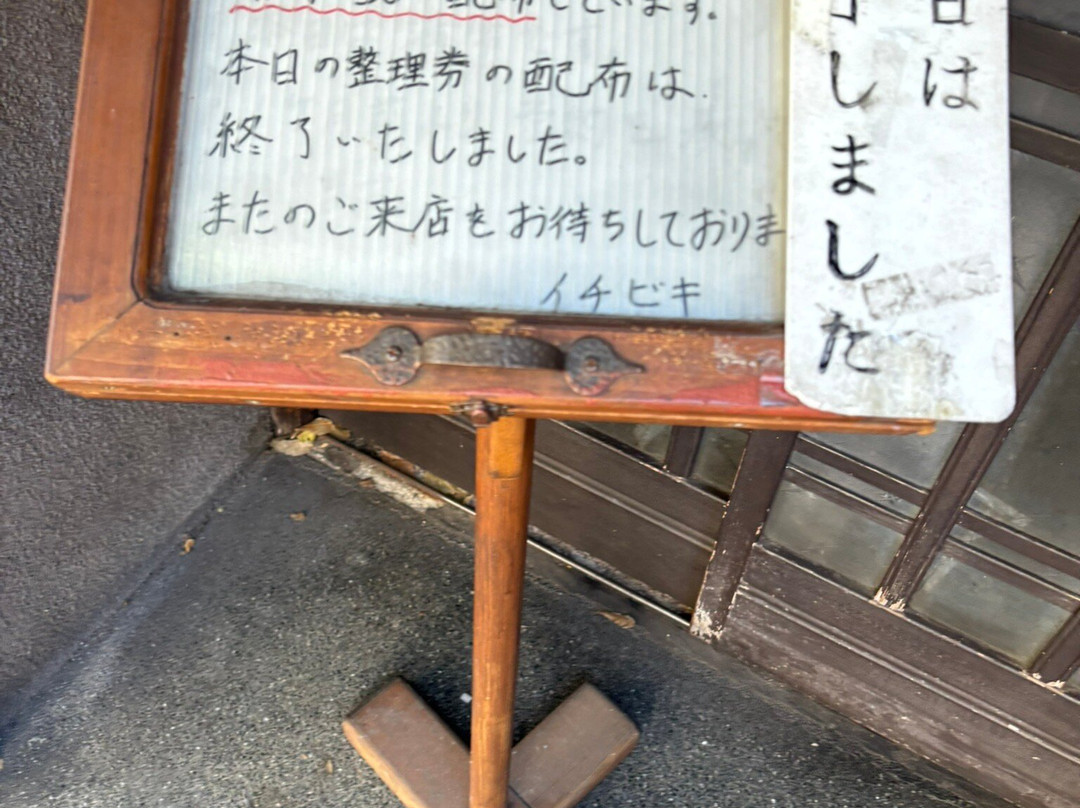 配布しています。
本日の整理券の配布は.
終了いたしました。
またのご来店をお待ちしておりま
イチビキ
日は
了しました